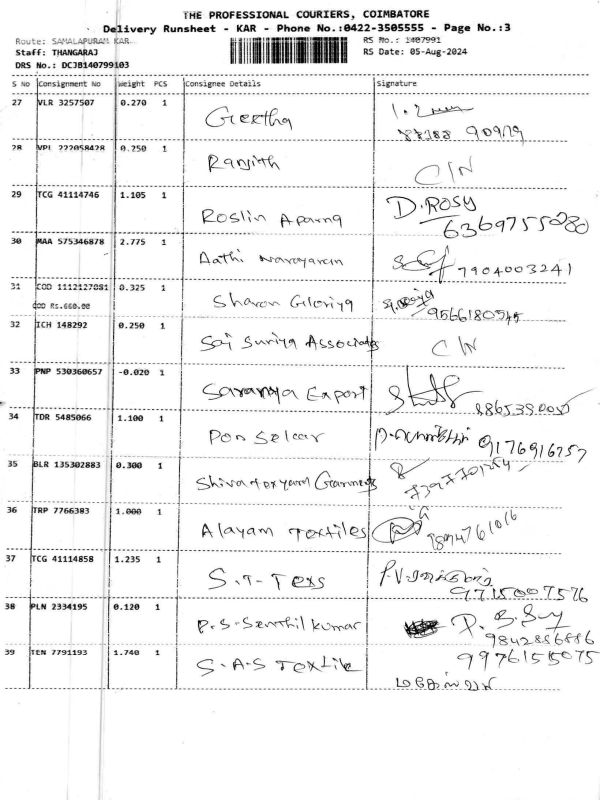 THE PROFESSIONAL COURIERS, COIMBATORE
Delivery Runsheet - KAR - Phone No.:0422-3505555 - Page No.:3
Route: SAMALAPURAM KAR
RS No.: 1407991
Staff: THANGARAJ
RS Date: 05-Aug-2024
DRS No.: DCJB140799103
S No Consignment No Weight PCS Consignee Details Signature
27 VLR 3257507 0.270 1 Geetha
28 VPL 222058428 0.250 1 Ranjith C/N
29 TCG 41114746 1.105 1 Roslin Aparna D.ROSY
6369755080
30 MAA 575346878 2.775 1 Aathi Narayanan 7904003241
31 COD 1112127081 0.325 1 Sharon Gloriya
COD Rs.660.00 9566180545
32 ICH 148292 0.250 1 Sai Suriya Associates C/N
33 PNP 530360657 -0.020 1 Saranya Export
34 TDR 5485066 1.100 1 Pon Selvar 9176916757
35 BLR 135302883 0.300 1 Garments
36 TRP 7766383 1.000 1 Alayam Textiles
37 TCG 41114858 1.235 1 S.T-Texs
9715007576
38 PLN 2334195 0.120 1 P.S.Senthil Kumar
9842886886
39 TEN 7791193 1.740 1 S.A.S Textile 9976155075